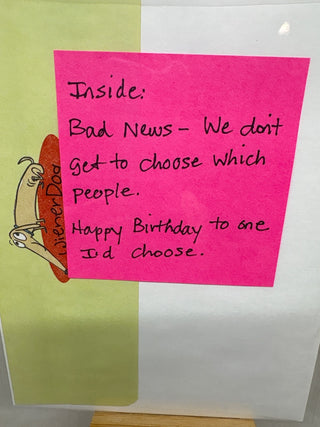 Inside:
Bad News - We don't
get to choose which
people.
Happy Birthday to one
I'd choose.
WienerDog